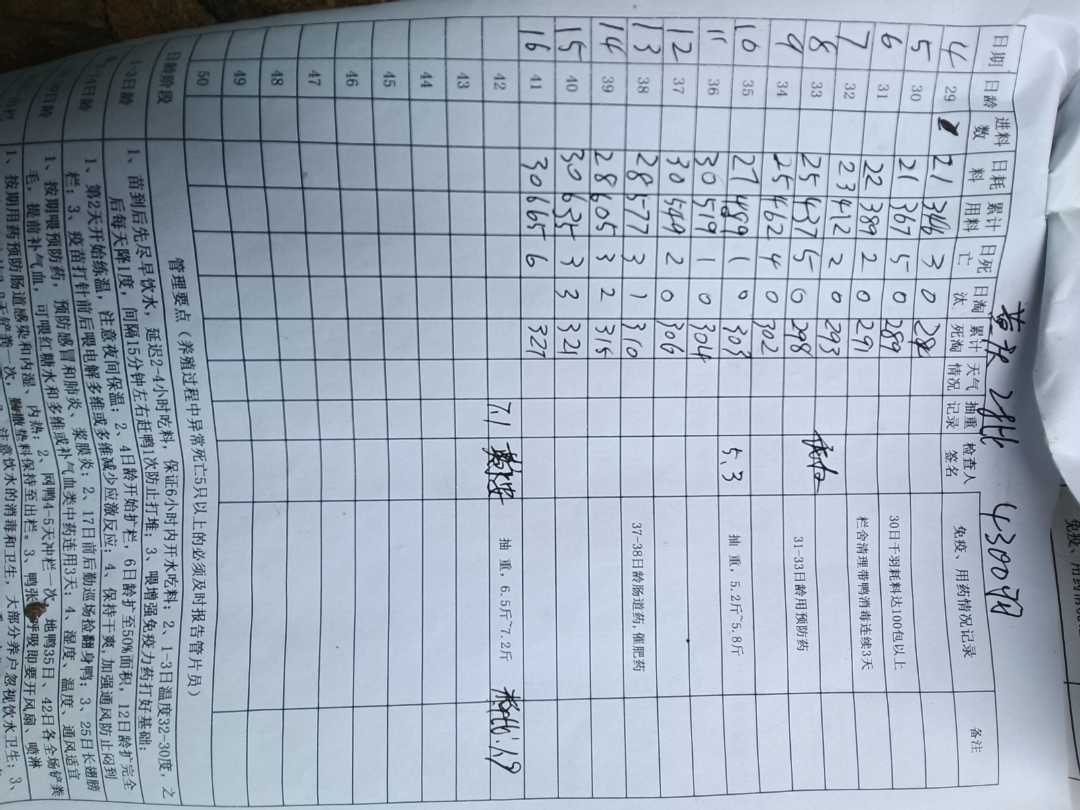 2批 4300羽
日期 日龄 进料数 日耗料 累计用料 日死亡 日淘汰 累计死淘 天气情况 抽重记录 检查人签名 免疫、用药情况记录 备注
4 29 21 346 3 0 284
5 30 21 367 5 0 289 30日千羽耗料达100包以上
6 31 22 389 2 0 291 栏舍清理带鸭消毒连续3天
7 32 23 412 2 0 293
8 33 25 437 5 0 298 31-33日龄用预防药
9 34 25 462 4 0 302
10 35 27 489 1 0 303 5.3 抽重，5.2斤~5.8斤
11 36 30 519 1 0 304
12 37 30 549 2 0 306
13 38 28 577 3 1 310 37-38日龄肠道药,催肥药
14 39 28 605 3 2 315
15 40 30 635 3 3 321
16 41 30 665 6 327
42 7.1 抽重，6.5斤~7.2斤
43
44
45
46
47
48
49
50
日龄阶段 管理要点（养殖过程中异常死亡5只以上的必须及时报告管片员）
1-3日龄 1、苗到后先尽早饮水，延迟2-4小时吃料，保证6小时内开水吃料；2、1-3日温度32-30度，之
后每天降1度，间隔15分钟左右赶鸭1次防止打堆；3、喂增强免疫力药打好基础；
日龄 1、第2天开始练温，注意夜间保温；2、4日龄开始扩栏，6日龄扩至50%面积，12日龄扩完全
栏；3、疫苗打针前后喂电解多维或多维减少应激反应；4、保持干爽,加强通风防止闷到
日龄 1、按期喂预防药，预防感冒和肺炎、浆膜炎；2、17日前后勤巡场捡翻身鸭；3、25日长翅膀
毛，提前补气血，可喂红糖水和多维或补气血类中药连用3天；4、湿度、温度、通风适宜
1、按期用药预防肠道感染和内湿、内热；2、网鸭4-5天冲栏一次,地鸭35日、42日各全场铲粪
一次，撒垫料保持至出栏。3、鸭张呼吸即要开风扇、喷淋
注意饮水的消毒和卫生，大部分养户忽视饮水卫生；3、